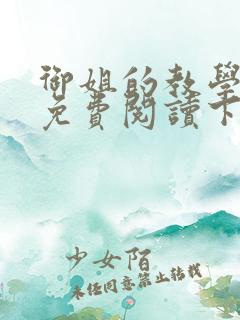 御姐的教學
免費閱讀下
少女陌
未经同意禁止转载